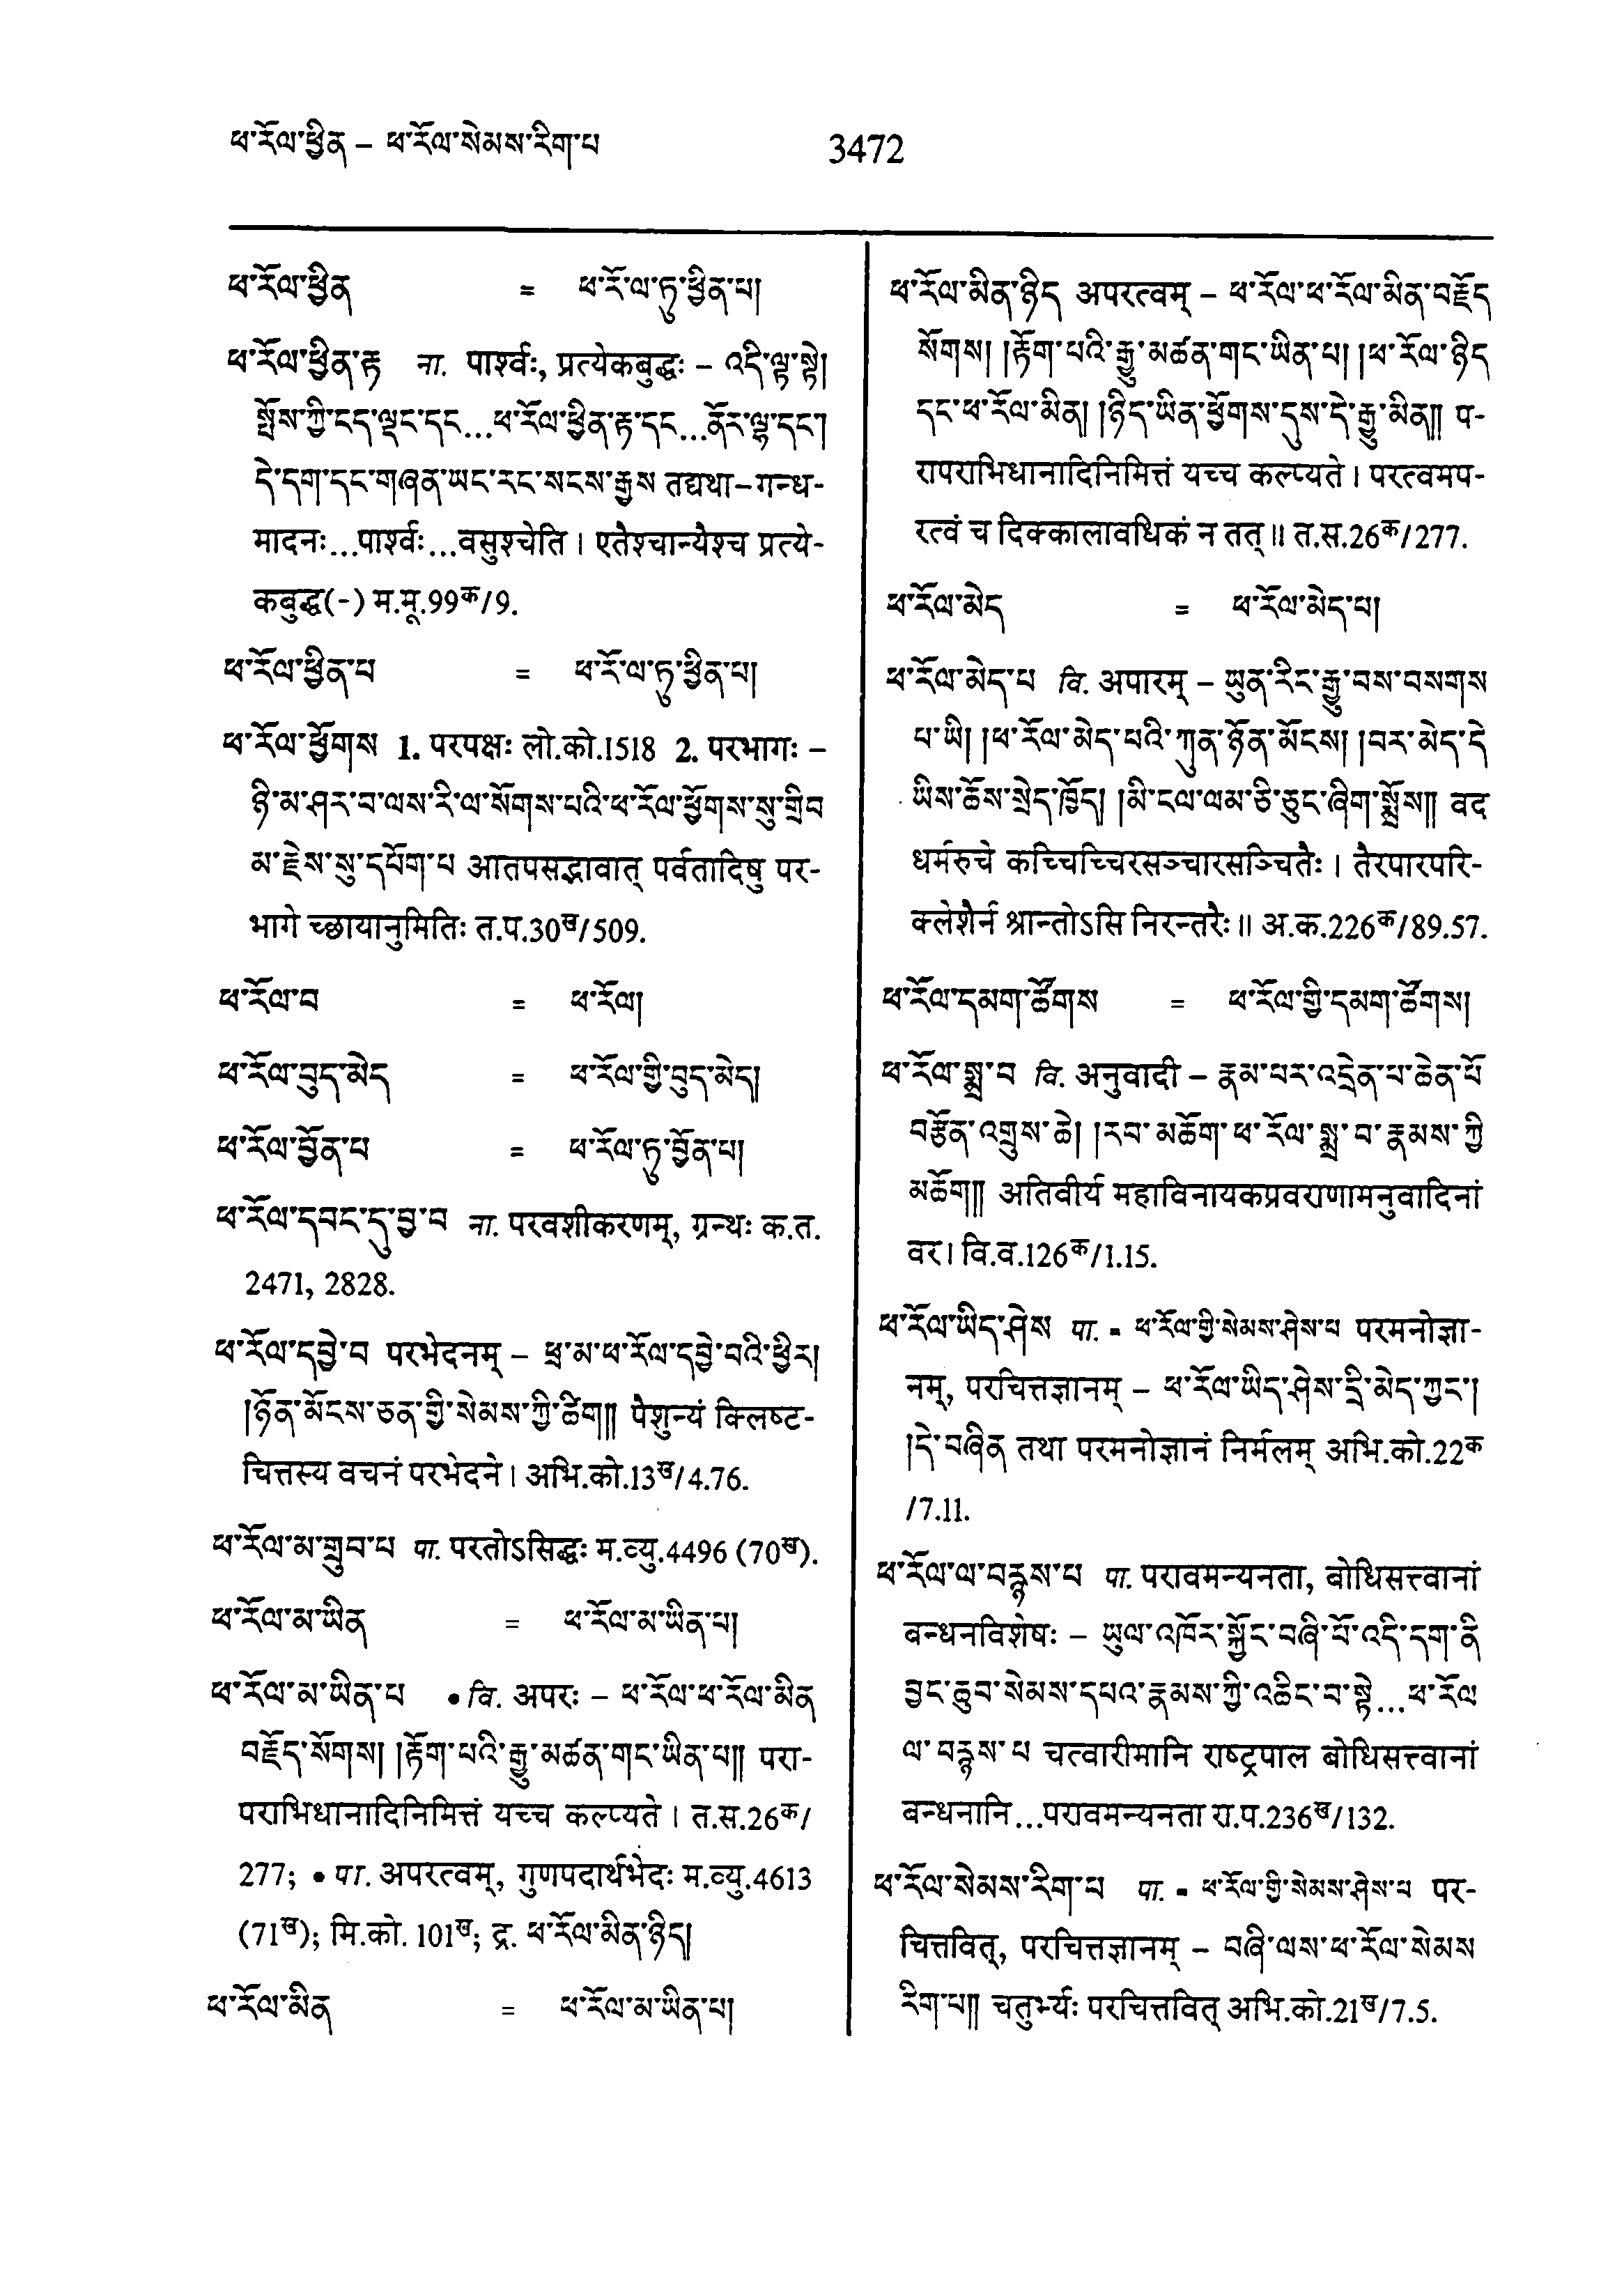 ཕ་རོལ་ཕྱིན – ཕ་རོལ་སེམས་རིག་པ 3472
ཕ་རོལ་ཕྱིན = ཕ་རོ་ལ་ཏུ་ཕྱིན་པ།
ཕ་རོལ་ཕྱིན་རྟ ना. पार्श्वः, प्रत्येकबुद्धः – འདི་ལྟ་སྟེ།
སྤོས་ཀྱི་ངད་ལྡང་དང...ཕ་རོལ་ཕྱིན་རྟ་དང...ནོར་ལྷ་དང་།
དེ་དག་དང་གཞན་ཡང་རང་སངས་རྒྱས तद्यथा–गन्ध-
मादनः...पार्श्वः...वसुश्चेति । एतैश्चान्यैश्च प्रत्ये-
कबुद्ध(-) म.मू.99क/9.
ཕ་རོལ་ཕྱིན་པ = ཕ་རོ་ལ་ཏུ་ཕྱིན་པ།
ཕ་རོལ་ཕྱོགས 1. परपक्षः लो.को.1518 2. परभागः –
ཉི་མ་ཤར་བ་ལས་རི་ལ་སོགས་པའི་ཕ་རོལ་ཕྱོགས་སུ་གྲིབ
མ་རྗེས་སུ་དཔོག་པ आतपसद्भावात् पर्वतादिषु पर-
भागे च्छायानुमितिः त.प.30ख/509.
ཕ་རོལ་བ = ཕ་རོལ།
ཕ་རོལ་བུད་མེད = ཕ་རོལ་གྱི་བུད་མེད།
ཕ་རོལ་བྱོན་པ = ཕ་རོལ་ཏུ་བྱོན་པ།
ཕ་རོལ་དབང་དུ་བྱ་བ ना. परवशीकरणम्, ग्रन्थः क.त.
2471, 2828.
ཕ་རོལ་དབྱེ་བ परभेदनम् – ཕྲ་མ་ཕ་རོལ་དབྱེ་བའི་ཕྱིར།
།ཉོན་མོངས་ཅན་གྱི་སེམས་ཀྱི་ཚིག། पैशुन्यं क्लिष्ट-
चित्तस्य वचनं परभेदने । अभि.को.13ख/4.76.
ཕ་རོལ་མ་གྲུབ་པ पा. परतोऽसिद्धः म.व्यु.4496 (70ख).
ཕ་རོལ་མ་ཡིན = ཕ་རོལ་མ་ཡིན་པ།
ཕ་རོལ་མ་ཡིན་པ • वि. अपरः – ཕ་རོལ་ཕ་རོལ་མིན
བརྗོད་སོགས། །རྟོག་པའི་རྒྱུ་མཚན་གང་ཡིན་པ།། परा-
पराभिधानादिनिमित्तं यच्च कल्प्यते । त.स.26क/
277; • पा. अपरत्वम्, गुणपदार्थभेदः म.व्यु.4613
(71ख); मि.को. 101ख; द्र. ཕ་རོལ་མིན་ཉིད།
ཕ་རོལ་མིན = ཕ་རོལ་མ་ཡིན་པ།
ཕ་རོལ་མིན་ཉིད अपरत्वम् – ཕ་རོལ་ཕ་རོལ་མིན་བརྗོད
སོགས། །རྟོག་པའི་རྒྱུ་མཚན་གང་ཡིན་པ། །ཕ་རོལ་ཉིད
དང་ཕ་རོལ་མིན། །ཉིད་ཡིན་ཕྱོགས་དུས་དེ་རྒྱུ་མིན།། प-
रापराभिधानादिनिमित्तं यच्च कल्प्यते । परत्वमप-
रत्वं च दिक्कालावधिकं न तत् ॥ त.स.26क/277.
ཕ་རོལ་མེད = ཕ་རོལ་མེད་པ།
ཕ་རོལ་མེད་པ वि. अपारम् – ཡུན་རིང་རྒྱུ་བས་བསགས
པ་ཡི། །ཕ་རོལ་མེད་པའི་ཀུན་ཉོན་མོངས། །བར་མེད་དེ
ཡིས་ཆོས་སྲེད་ཁྱོད། །མི་ངལ་ལམ་ཅི་ཅུང་ཞིག་སྨྲོས།། वद
धर्मरुचे कच्चिच्चिरसञ्चारसञ्चितैः । तैरपारपरि-
क्लेशैर्न श्रान्तोऽसि निरन्तरैः ॥ अ.क.226क/89.57.
ཕ་རོལ་དམག་ཚོགས = ཕ་རོལ་གྱི་དམག་ཚོགས།
ཕ་རོལ་སྨྲ་བ वि. अनुवादी – རྣམ་པར་འདྲེན་པ་ཆེན་པོ
བརྩོན་འགྲུས་ཆེ། །རབ་མཆོག་ཕ་རོལ་སྨྲ་བ་རྣམས་ཀྱི
མཆོག།། अतिवीर्य महाविनायकप्रवराणामनुवादिनां
वर । वि.व.126क/1.15.
ཕ་རོལ་ཡིད་ཤེས पा. = ཕ་རོལ་གྱི་སེམས་ཤེས་པ परमनोज्ञा-
नम्, परचित्तज्ञानम् – ཕ་རོལ་ཡིད་ཤེས་དྲི་མེད་ཀྱང་།
།དེ་བཞིན तथा परमनोज्ञानं निर्मलम् अभि.को.22क
/7.11.
ཕ་རོལ་ལ་བརྙས་པ पा. परावमन्यनता, बोधिसत्त्वानां
बन्धनविशेषः – ཡུལ་འཁོར་སྐྱོང་བཞི་པོ་འདི་དག་ནི
བྱང་ཆུབ་སེམས་དཔའ་རྣམས་ཀྱི་འཆིང་བ་སྟེ...ཕ་རོལ
ལ་བརྙས་པ चत्वारीमानि राष्ट्रपाल बोधिसत्त्वानां
बन्धनानि...परावमन्यनता रा.प.236ख/132.
ཕ་རོལ་སེམས་རིག་པ पा. = ཕ་རོལ་གྱི་སེམས་ཤེས་པ पर-
चित्तवित्, परचित्तज्ञानम् – བཞི་ལས་ཕ་རོལ་སེམས
རིག་པ།། चतुर्भ्यः परचित्तवित् अभि.को.21ख/7.5.